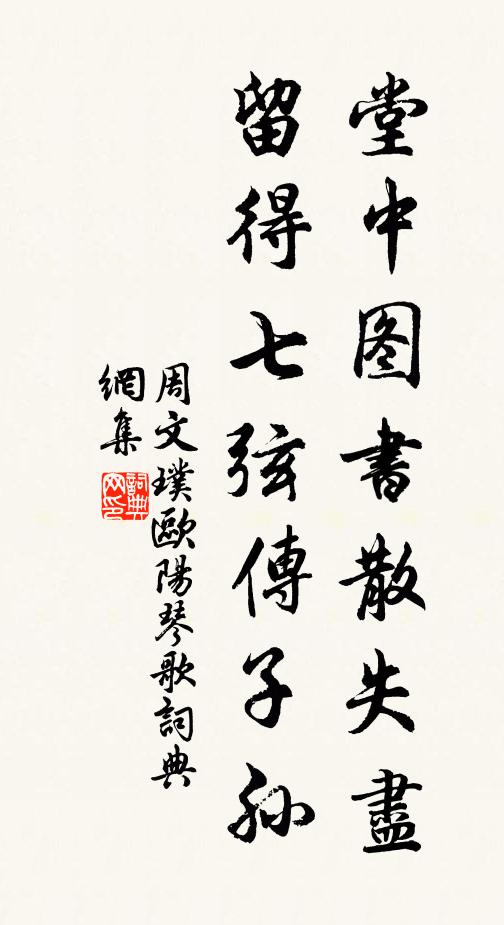 堂中图書散失盡
留得七弦傳子孙
周文璞歐陽琴歌詞典
網集
詞典
网印